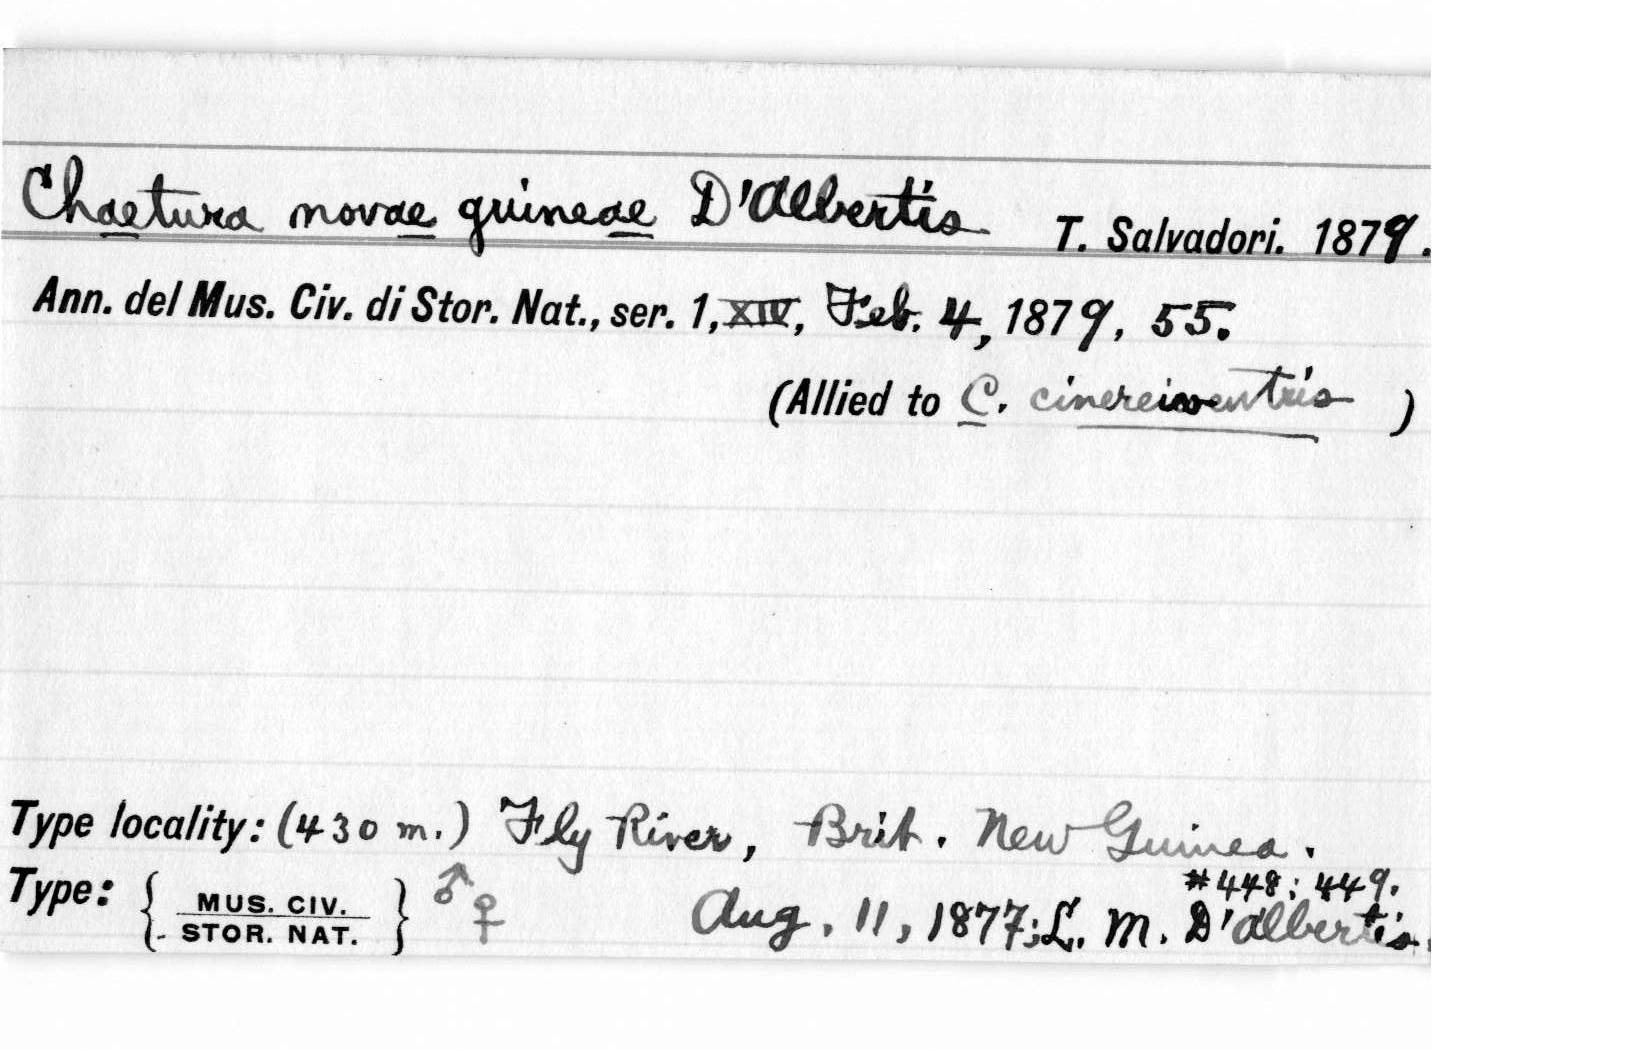 Chaetura novae guineae D'Albertis T. Salvadori. 1879.
Ann. del Mus. Civ. di Stor. Nat., ser. 1, XIV, Feb. 4, 1879, 55.
(Allied to C. cinereiventris )
Type locality: (430 m.) Fly River, Brit. New Guinea.
#448; 449.
Type: { MUS. CIV. STOR. NAT. } ♂ ♀ Aug. 11, 1877; L. M. D'Albertis.